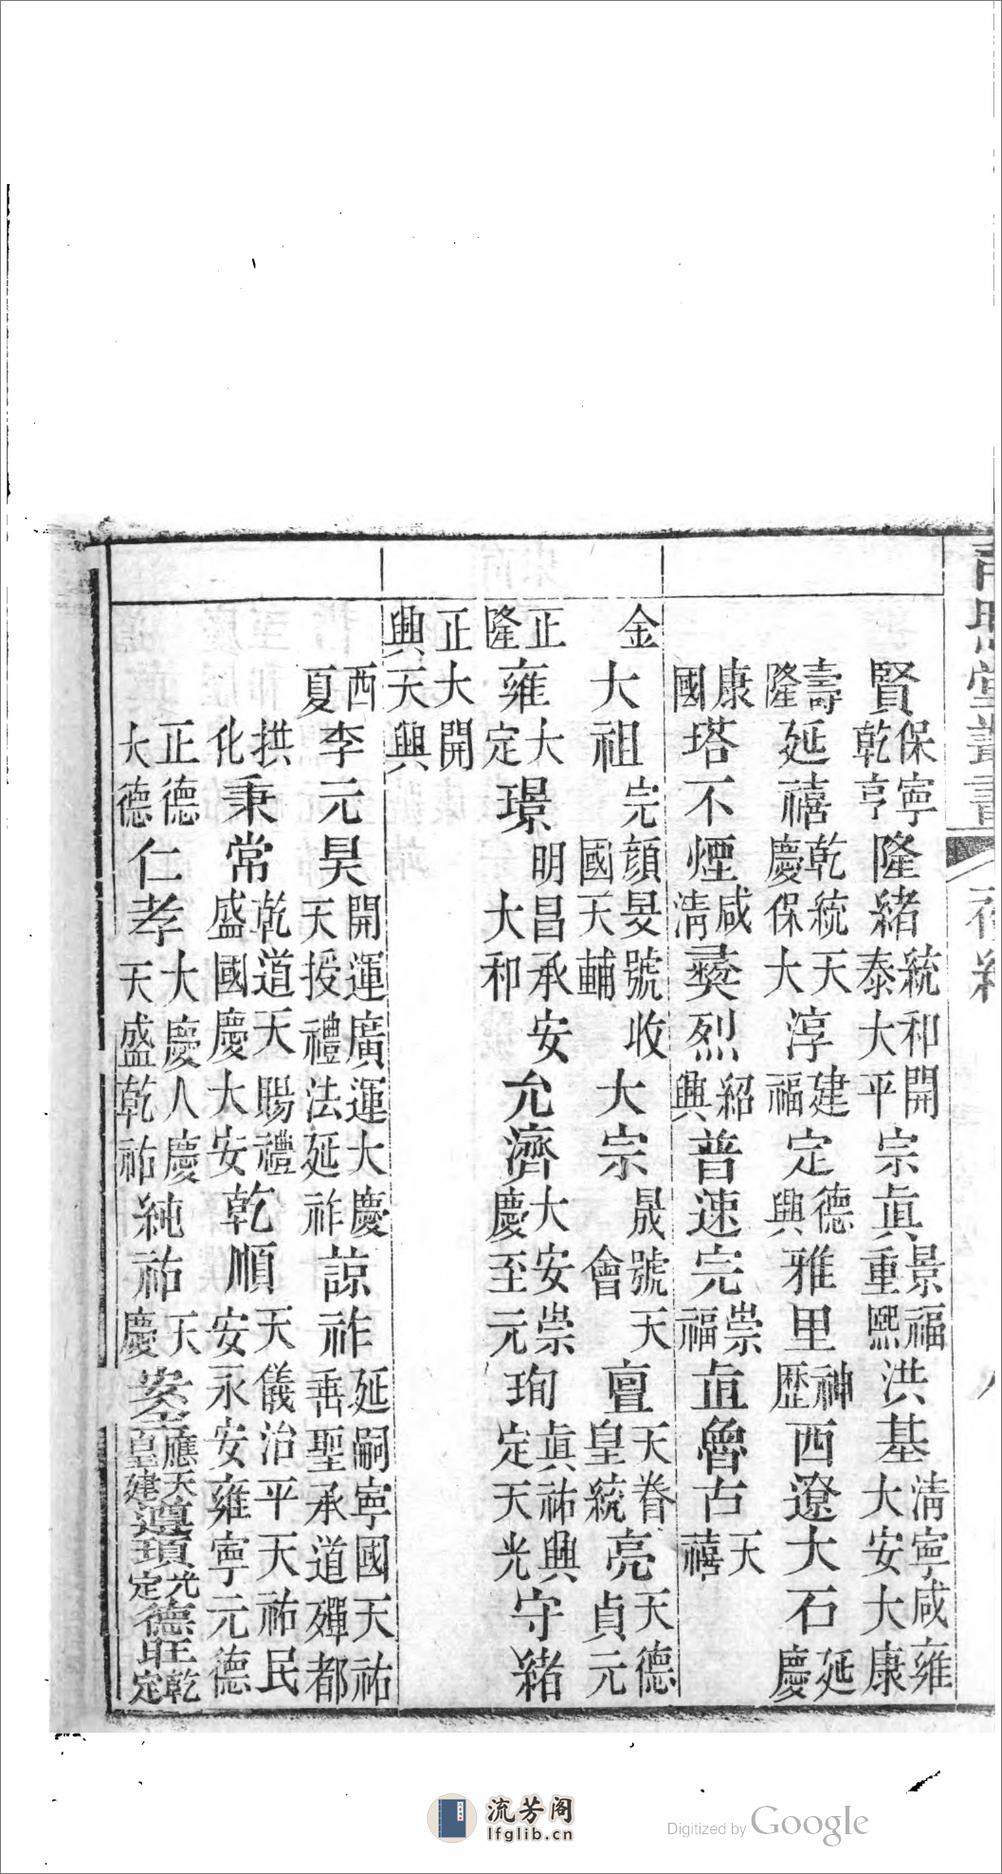 堂叢書
賢保寧乾亨隆緒統和開泰大平宗眞景福重熙洪基清寧咸雍大安大康
壽隆延禧乾統天慶保大淳建福定德興雅里神歷西遼大石延慶
康國塔不煙咸清彛烈紹興普速完崇福直魯古天禧
金大祖完顔旻號收國天輔大宗晟號天會亶天眷皇統亮天德貞元
正隆雍大定璟明昌承安大和允濟大安崇慶至元珣眞祐興定天光守緒
正大開興天興
西夏李元昊開運廣運大慶天授禮法延祚諒祚延嗣寧國天祐垂聖承道嚲都
拱化秉常乾道天賜禮盛國慶大安乾順天儀治平天祐民安永安雍寧元德
正德大德仁孝大慶人慶天盛乾祐純祐天慶安全應天皇建遵頊光定德旺乾定
流芳阁
lfglib.cn
Digitized by Google